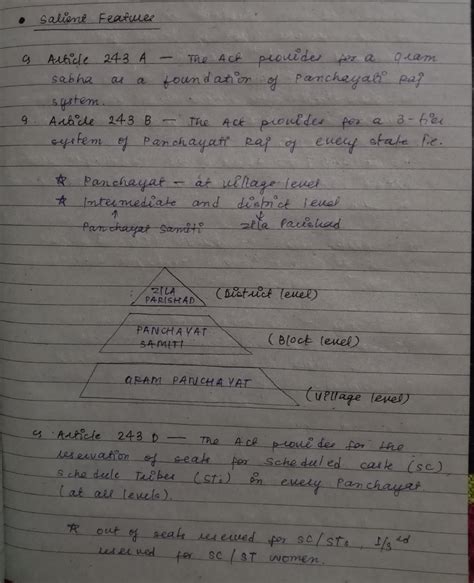 • Salient Features
9 Article 243 A — The Act provides for a Gram
sabha as a foundation of Panchayati Raj
system.
9. Article 243 B — The Act provides for a 3-tier
system of Panchayati Raj of every state i.e.
☆ Panchayat — at village level
☆ Intermediate and district level
↑ ↓
Panchayat Samiti Zila Parishad
ZILA
PARISHAD (District level)
PANCHAYAT
SAMITI (Block level)
GRAM PANCHAYAT (Village level)
Article 243 D — The Act provides for the
reservation of seats for Scheduled caste (SC),
Schedule Tribes (STs) in every Panchayat
(at all levels).
☆ out of seats reserved for SC/STs, 1/3rd
reserved for SC/ST women.